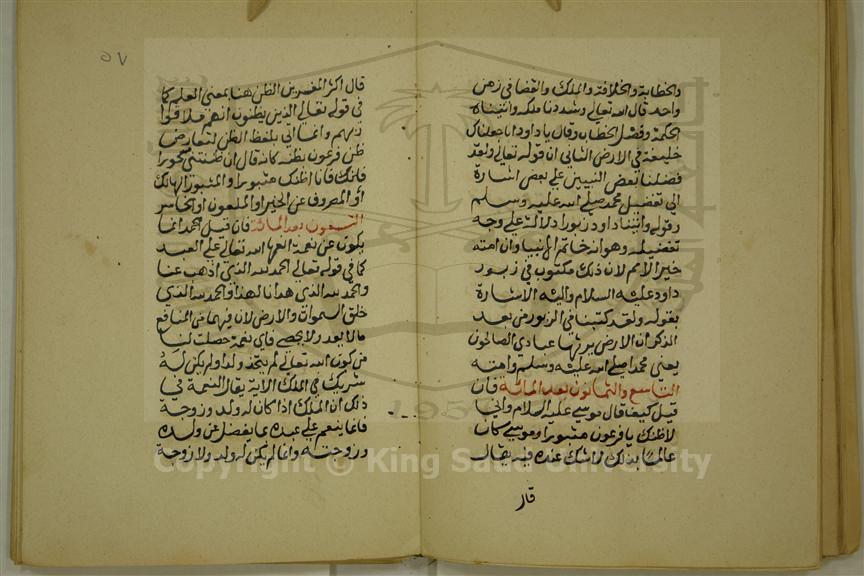 والخطابة والخلافة والملك والقضا في زمن
واحد قال الله تعالى وشددنا ملكه واتيناه
الحكمة وفصل الخطاب وقال يا داود انا جعلناك
خليفة في الارض الثاني ان قوله تعالى ولقد
فضلنا بعض النبيين على بعض اشارة
الى تفضيل محمد صلى الله عليه وسلم
وقوله واتينا داود زبورا دلالة على وجه
تفضيله وهو انه خاتم الانبيا وان امته
خير الامم لان ذلك مكتوب في زبور
داود عليه السلام واليه الاشارة
بقوله ولقد كتبنا في الزبور من بعد
الذكر ان الارض يرثها عبادي الصالحون
يعني محمدا صلى الله عليه وسلم وامته
التاسع والثمانون بعد المائة فان
قيل كيف قال موسى عليه السلام واني
لاظنك يا فرعون مثبورا وموسى كان
عالما بذلك لا شك عنده فيه يقال
قال
٥٧
قال اكثر المفسرين الظن هنا بمعنى العلم كما
في قوله تعالى الذين يظنون انهم ملاقوا
ربهم وانما اتى بلفظ الظن لتعارض
ظن فرعون بظنه كانه قال ان ظننتني مسحورا
فانك فانا اظنك مثبورا والمثبور الهالك
او المصروف عن الخير او الملعون او الخاسر
التسعون بعد المائة فان قيل الحمد انما
يكون عن نعمة انعمها الله تعالى على العبد
كما في قوله تعالى الحمد لله الذي اذهب عنا
والحمد لله الذي هدانا لهذا والحمد لله الذي
خلق السموات والارض لان فيهما من المنافع
ما لا يعد ولا يحصى فاي نعمة حصلت لنا
من كون الله تعالى لم يتخذ ولدا ولم يكن له
شريك في الملك الاية يقال النعمة في
ذلك ان الملك اذا كان له ولد وزوجة
فانما ينعم على عبده بما يفضل عن ولده
وزوجته وانما لم يكن له ولد ولا زوجة
1957
Copyright © King Saud University